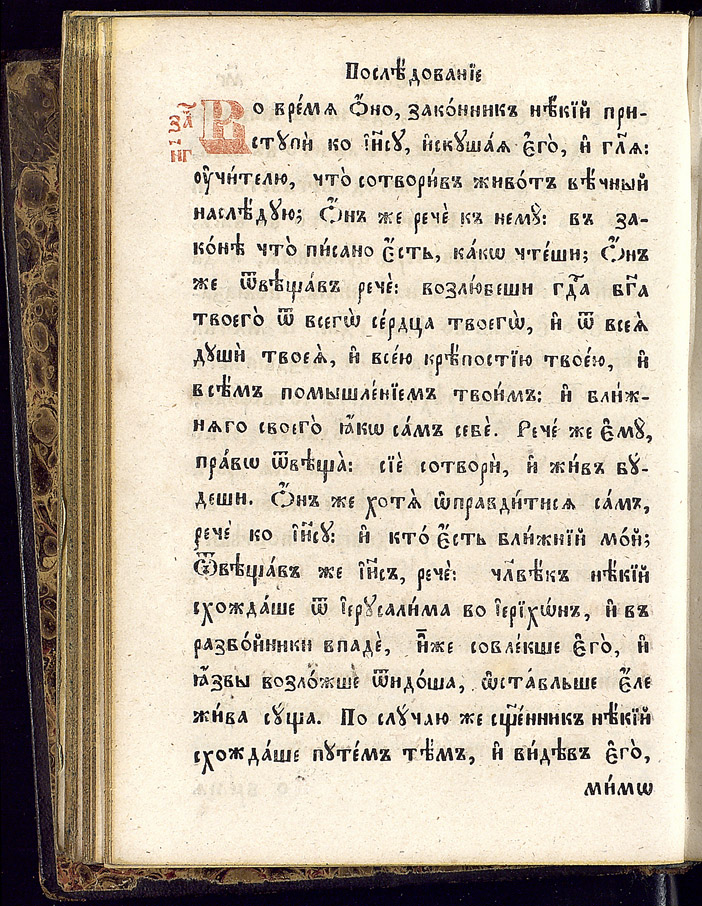 Послѣ́дованїе
за҃ нг
Во вре́мѧ ѻ҆́но, зако́нникъ нѣ́кїй при-
стꙋпѝ ко і҆и҃сꙋ, и҆скꙋша́ѧ є҆го̀, и҆ гл҃ѧ:
ᲂу҆чи́телю, что̀ сотвори́въ живо́тъ вѣ́чный
наслѣ́дꙋю; Ѻ҆́нъ же речѐ къ немꙋ̀: въ за-
ко́нѣ что̀ пи́сано є҆́сть, ка́кѡ чте́ши; Ѻ҆́нъ
же ѿвѣща́въ речѐ: возлю́беши гд҇а бг҃а
твоего̀ ѿ всегѡ̀ се́рдца твоегѡ̀, и҆ ѿ всеѧ̀
дꙋшѝ твоеѧ̀, и҆ все́ю крѣ́постїю твое́ю, и҆
всѣ́мъ помышле́нїемъ твои́мъ: и҆ бли́ж-
нѧго своего̀ ꙗ҆́кѡ са́мъ себѐ. Рече́ же є҆мꙋ̀,
пра́вѡ ѿвѣща̀: сїѐ сотворѝ, и҆ жи́въ бꙋ́-
деши. Ѻ҆́нъ же хотѧ̀ ѡ҆правди́тисѧ са́мъ,
речѐ ко і҆и҃сꙋ: и҆ кто́ є҆сть бли́жнїй мо́й;
Ѿвѣща́въ же і҆и҃съ, речѐ: чл҃вѣ́къ нѣ́кїй
схожда́ше ѿ і҆ерꙋсали́ма во і҆ерїхѡ́нъ, и҆ въ
разбо́йники впадѐ, и҆̀же совле́кше є҆го̀, и҆
ꙗ҆́звы возло́жше ѿидо́ша, ѡ҆ста́вльше є҆́ле
жи́ва сꙋ́ща. По слꙋ́чаю же сщ҃е́нникъ нѣ́кїй
схожда́ше пꙋте́мъ тѣ́мъ, и҆ ви́дѣвъ є҆го̀,
ми́мѡ